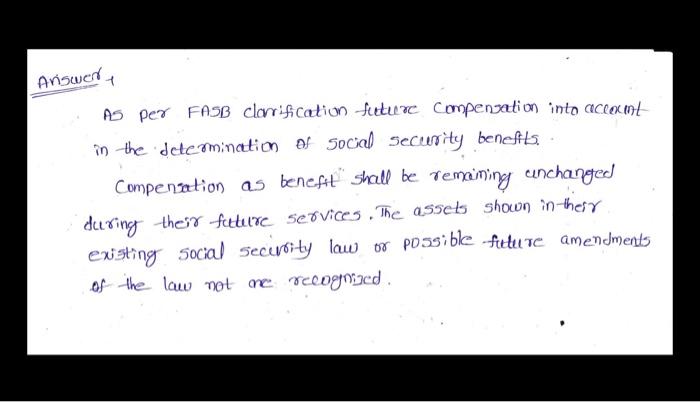 Answer
As per FASB clarification future compensation into account
in the determination of social security benefits.
Compensation as benefit shall be remaining unchanged
during their future services. The assets shown in their
existing social security law or possible future amendments
of the law not are recognized.